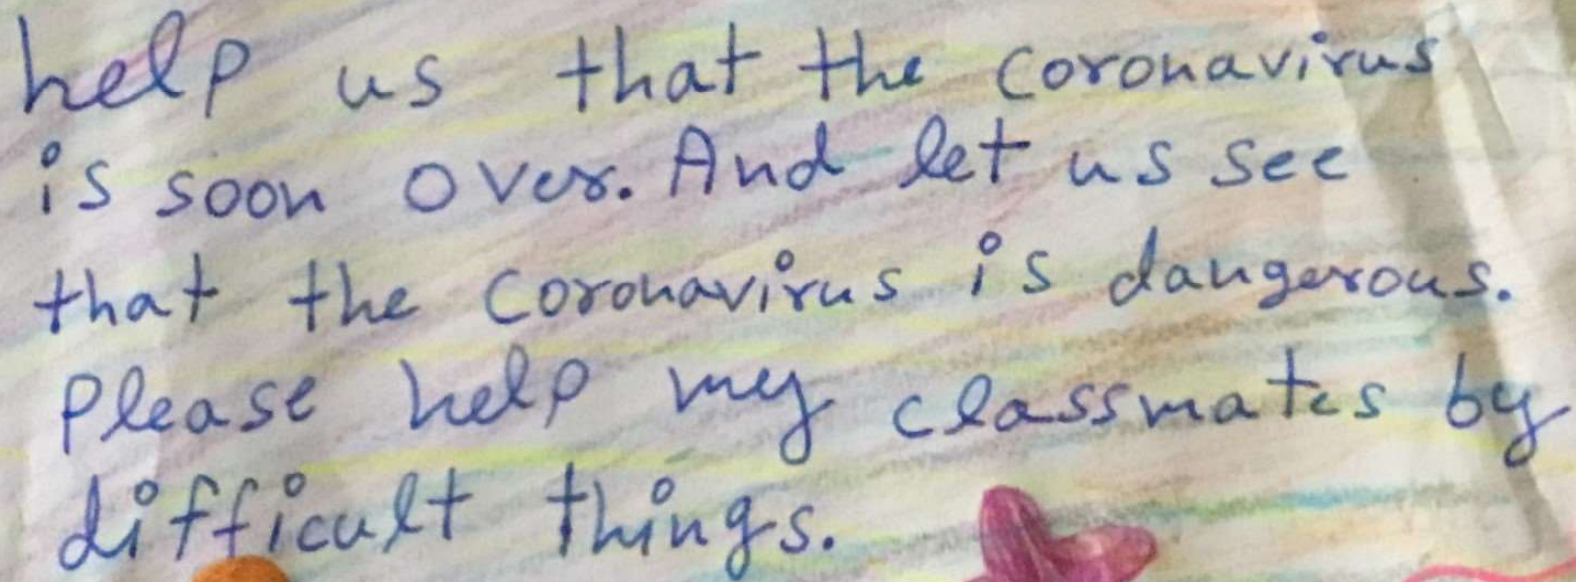 help us that the coronavirus
is soon over. And let us see
that the coronavirus is dangerous.
please help my classmates by
difficult things.